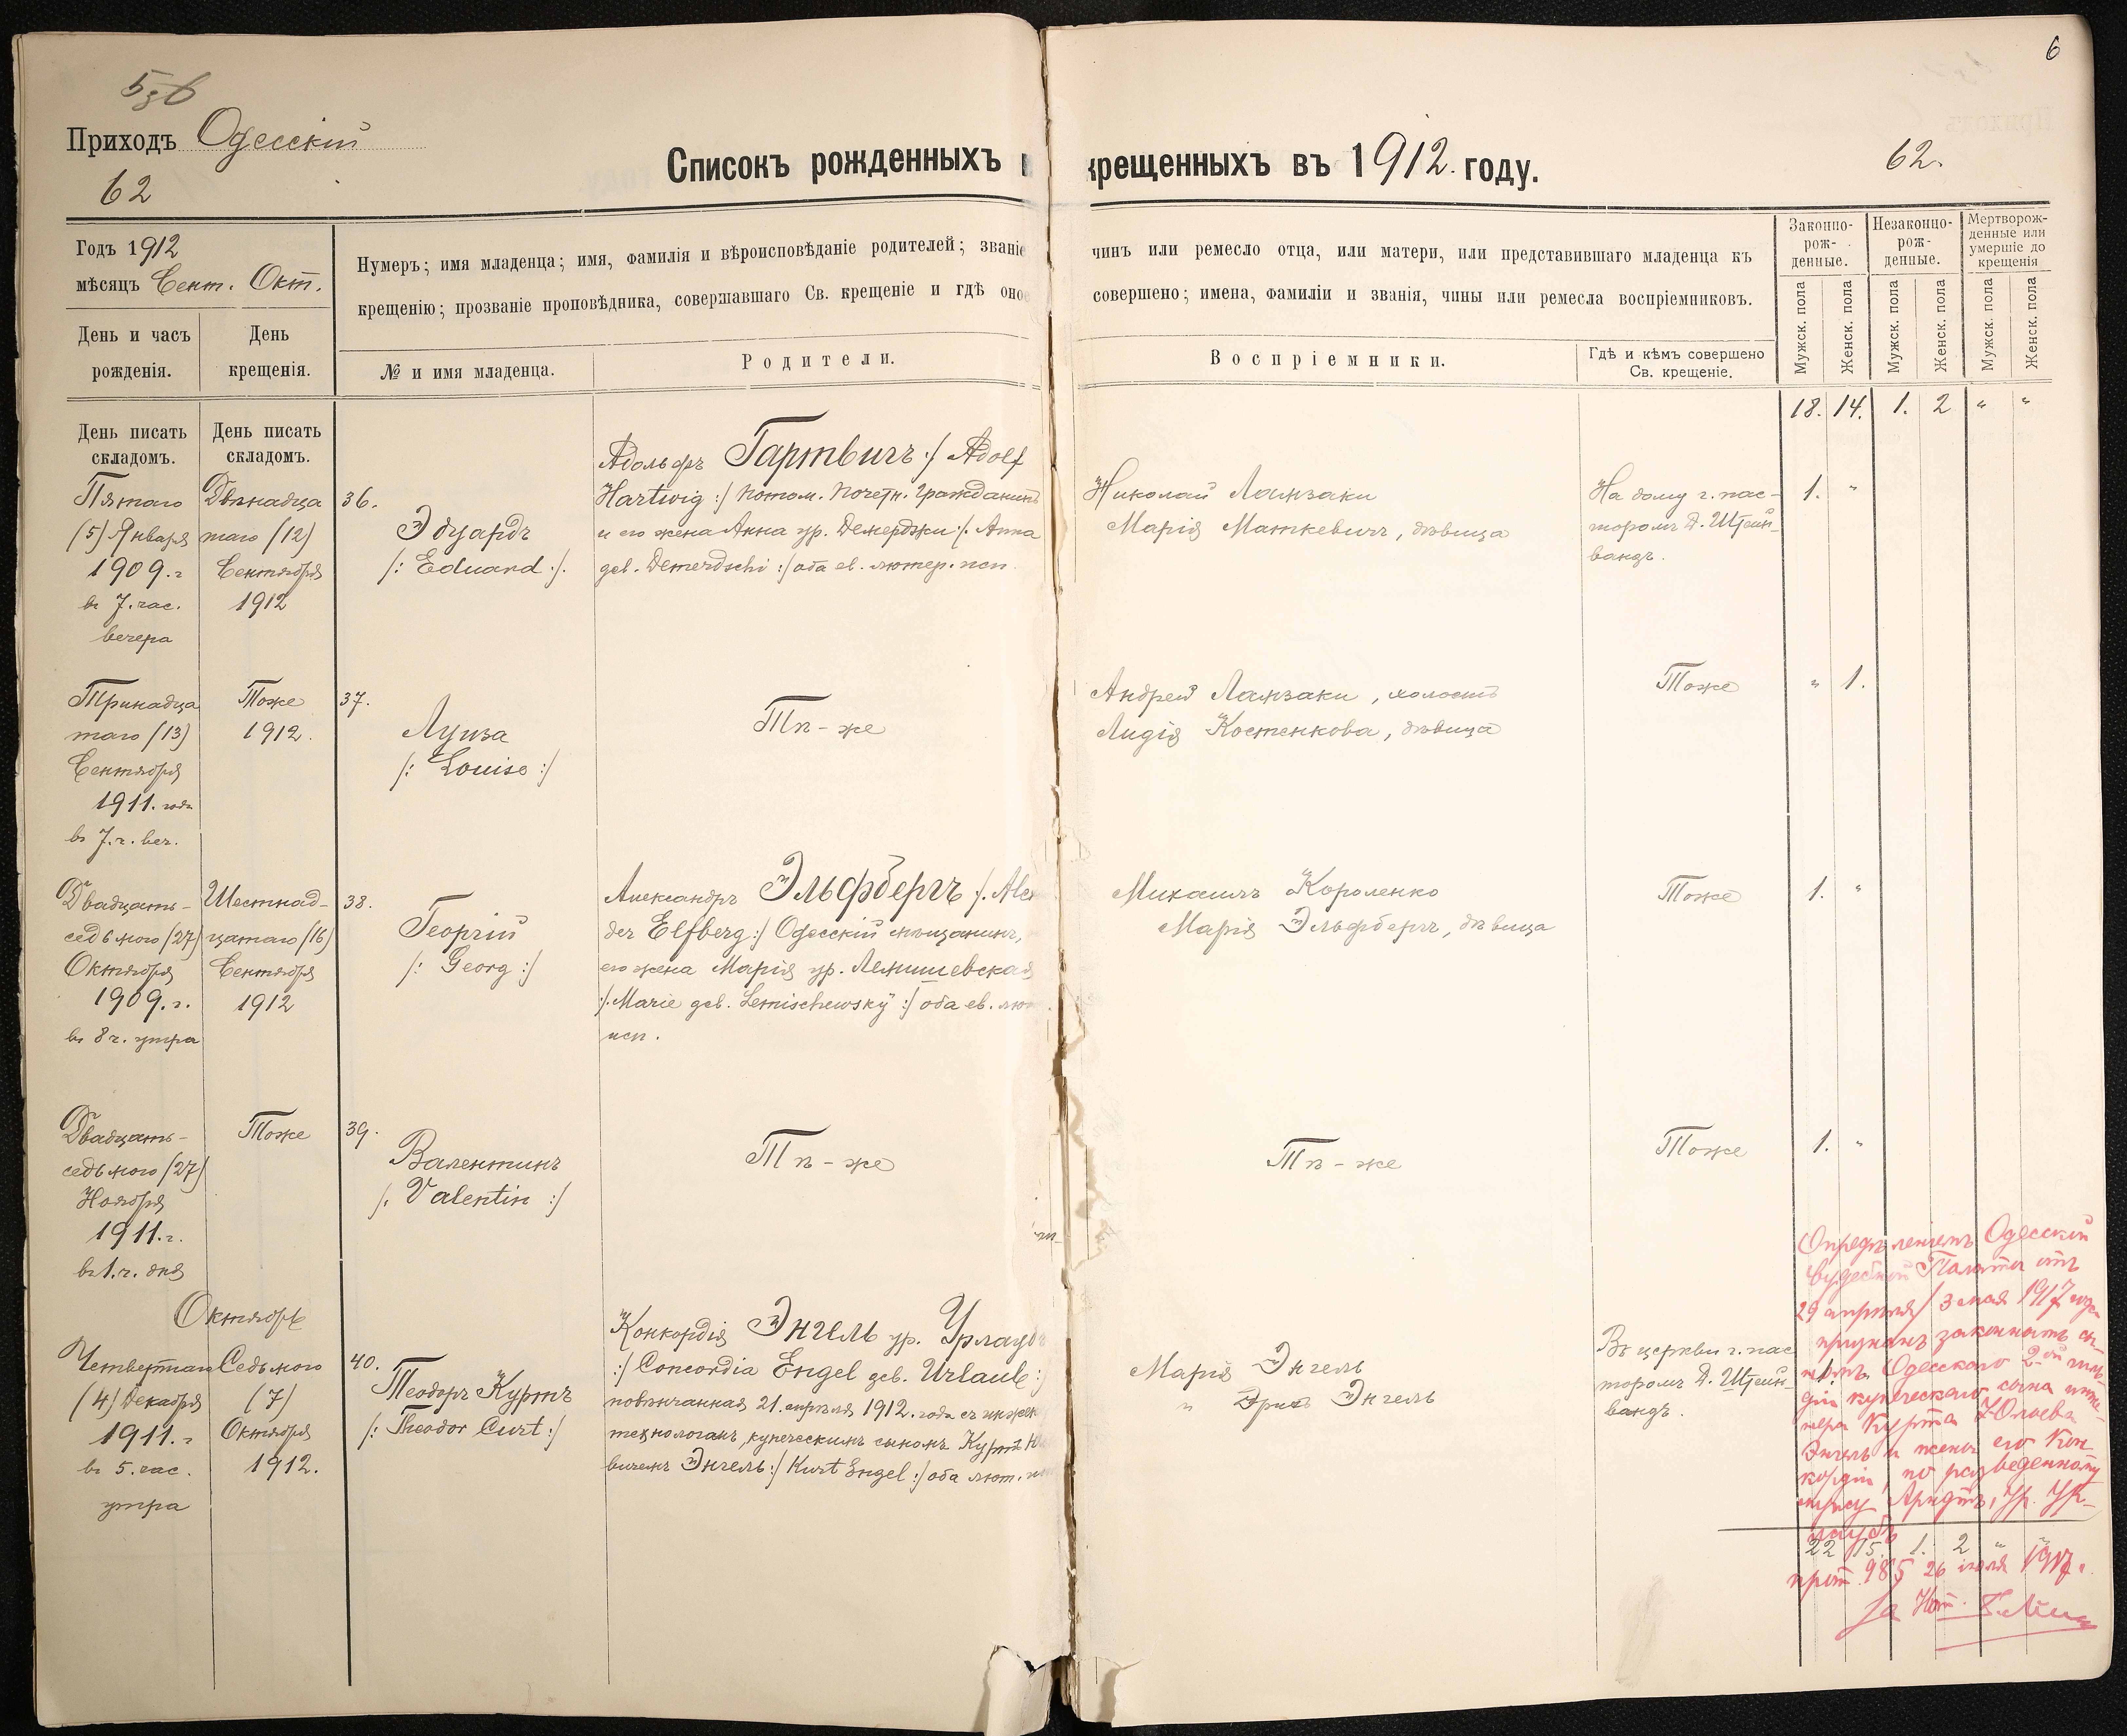 536
Приходъ Одесскій
62
Списокъ рожденныхъ
крещенныхъ въ 1912. году.
62.
6
Годъ 1912
мѣсяцъ Сент. Окт.
День и часъ
рожденія.
День
крещенія.
Нумеръ; имя младенца; имя, фамилія и вѣроисповѣданіе родителей; званіе
крещенію; прозваніе проповѣдника, совершавшаго Св. крещеніе и гдѣ оно
№ и имя младенца.
Родители.
чинъ или ремесло отца, или матери, или представившаго младенца къ
совершено; имена, фамиліи и званія, чины или ремесла воспріемниковъ.
Воспріемники.
Гдѣ и кѣмъ совершено
Св. крещеніе.
Законно-
рож-
денные.
Незаконно-
рож-
денные.
Мертворож-
денные или
умершіе до
крещенія
Мужск. пола
Женск. пола
Мужск. пола
Женск. пола
Мужск. пола
Женск. пола
18. 14. 1. 2 " "
День писать
складомъ.
День писать
складомъ.
Пятаго
(5) Января
1909. г
въ 7. час.
вечера
Двѣнадца
таго (12)
Сентября
1912
36.
Эдуардъ
/: Eduard :/.
Адольфъ Гартвигъ :/ Adolf
Hartwig :/ потом. почетн. гражданинъ
и его жена Анна ур. Демерджи /. Anna
geb. Demerdschi :/ оба ев. лютер. исп.
Николай Ламзаки
Марія Маткевичъ, дѣвица
На дому г. пас-
торомъ Д. Штейн-
вандъ.
1. "
Тринадца
таго (13)
Сентября
1911. года
въ 7. ч. веч.
Тоже
1912.
37.
Луиза
/: Louise :/
Тѣ-же
Андрей Ламзаки, холостъ
Лидія Костенкова, дѣвица
Тоже
" 1.
Двадцать-
седьмого (27)
Октября
1909. г.
въ 8 ч. утра
Шестнад-
цатаго (16)
Сентября
1912
38.
Георгій
/: Georg :/
Александръ Эльфбергъ /. Alex
der Elfberg :/ Одесскій мѣщанинъ,
его жена Марія ур. Лемишевская
:/. Marie geb. Lemischewsky :/ оба ев. лют
исп.
Михаилъ Короленко
Марія Эльфбергъ, дѣвица
Тоже
1. "
Двадцать-
седьмого (27)
Ноября
1911. г.
въ 1. ч. дня
Тоже
39.
Валентинъ
/. Valentin :/
Тѣ-же
Тѣ-же
Тоже
1. "
Октябрь
Четвертаго
(4) Декабря
1911. г
въ 5. час.
утра
Седьмого
(7)
Октября
1912.
40.
Теодоръ Куртъ
/: Theodor Curt :/
Конкордія Энгель ур. Урлаубъ
:/ Concordia Engel geb. Urlaub :/
повѣнчанная 21. апрѣля 1912. года съ инжен
технологомъ, купеческимъ сыномъ Куртъ Юл
вичемъ Энгель :/ Kurt Engel :/ оба лют. исп
Марія Энгель
" Эрихъ Энгель
Въ церкви г. пас
торомъ Д. Штейн-
вандъ.
1.
Опредѣленіемъ Одесской
Судебной Палаты отъ
29 апрѣля / 3 мая 1917 года
признанъ законнымъ сы-
номъ Одесскаго 2-ой гиль-
діи купеческаго сына инже-
нера Курта Юльева
Энгель и жены его Кон-
кордіи, по разведенному
мужу Арндтъ, ур. Ур-
лаубъ
22 15. 1. 2 " "
прот. 985 26 іюля 1917 г.